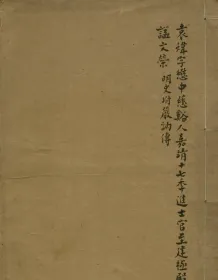 袁煒字懋中慈谿人嘉靖十七年進士官至建極殿
諡文榮 明史附嚴訥傳